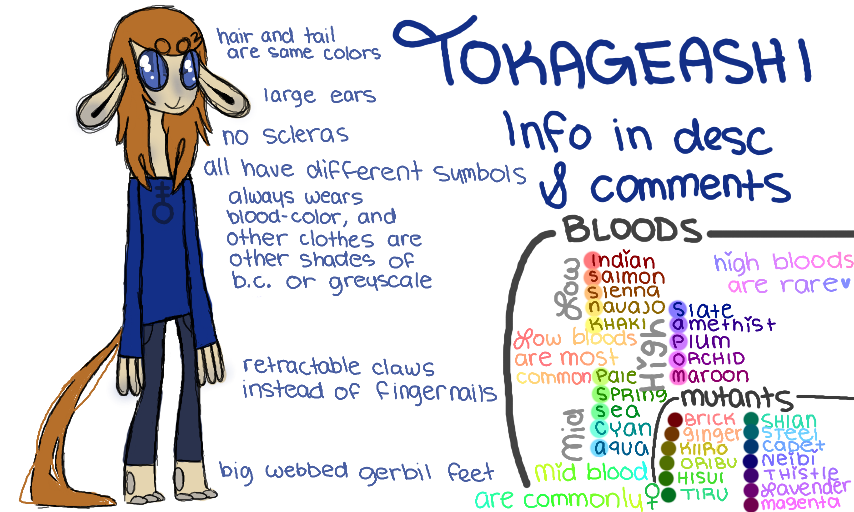 TOKAGEASHI
Info in desc
& comments
hair and tail
are same colors
large ears
no scleras
all have different symbols
always wears
blood-color, and
other clothes are
other shades of
b.c. or greyscale
retractable claws
instead of fingernails
big webbed gerbil feet
BLOODS
Low
indian
salmon
sienna
navajo
KHAKI
Low bloods
are most
common
high bloods
are rare
High
slate
amethist
plum
ORCHID
maroon
Mid
Pale
SPRING
sea
cyan
aqua
mid blood
are commonly ♀
mutants
BRICK
ginger
KIIRO
ORIBU
HISUI
TIRU
SHIAN
STEEL
CADET
NEIBI
THISTLE
Lavender
magenta